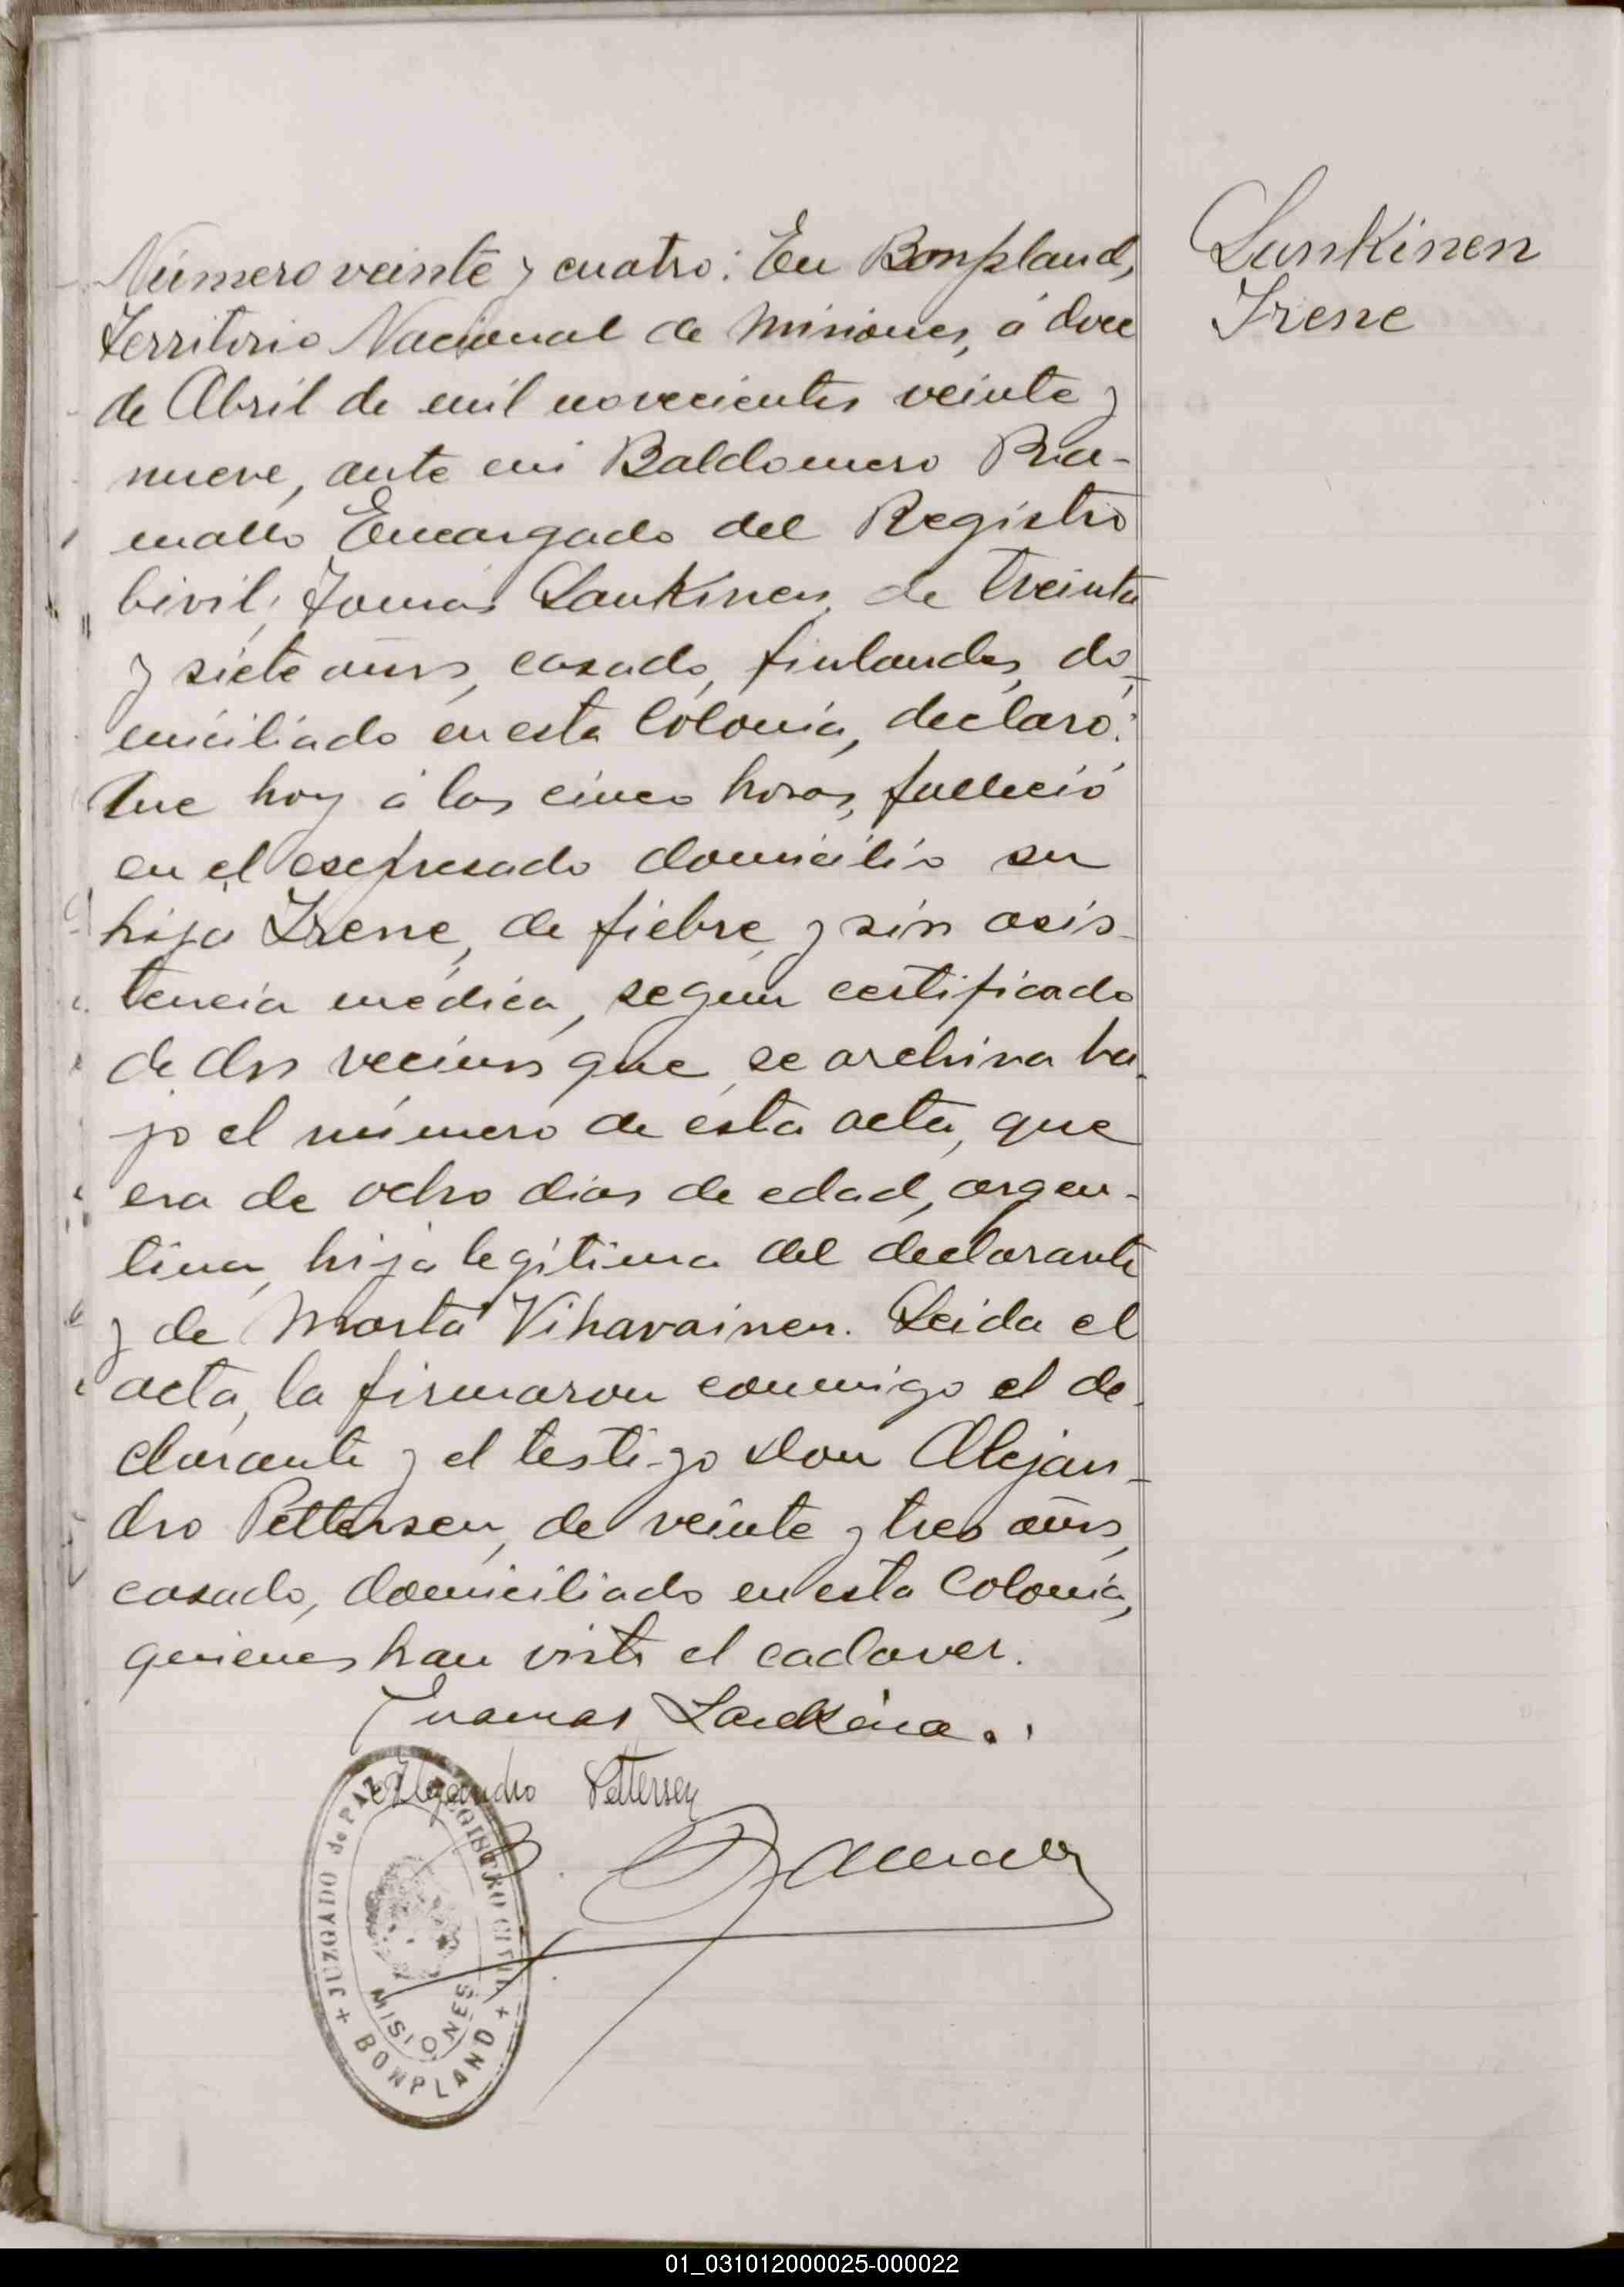 Número veinte y cuatro: En Bonpland,
Territorio Nacional de Misiones, á doce
de Abril de mil novecientos veinte y
nueve, ante mi Baldomero Ra-
mallo Encargado del Registro
Civil; Tomás Lankinen, de treinta
y siete años, casado, finlandes, do-
miciliado en esta Colonia, declaró:
Que hoy á las cinco horas, falleció
en el esepresado domicilio su
hija Irene, de fiebre, y sin asis-
tencia médica, segun certificado
de dos vecinos que se archiva ba-
jo el número de esta acta, que
era de ocho dias de edad, argen-
tina, hija legítima del declarante
y de Marta Viharainen. Leida el
acta, la firmaron conmigo el de-
clarante y el testigo Don Alejan-
dro Pettersen, de veinte y tres años,
casado, domiciliado en esta Colonia,
quienes han visto el cadaver.
Lankinen
Irene
Tuomas
Alejandro Pettersen
B. Ramallo
JUZGADO de PAZ Y REGISTRO CIVIL
MISIONES
+ BONPLAND +
01_031012000025-000022